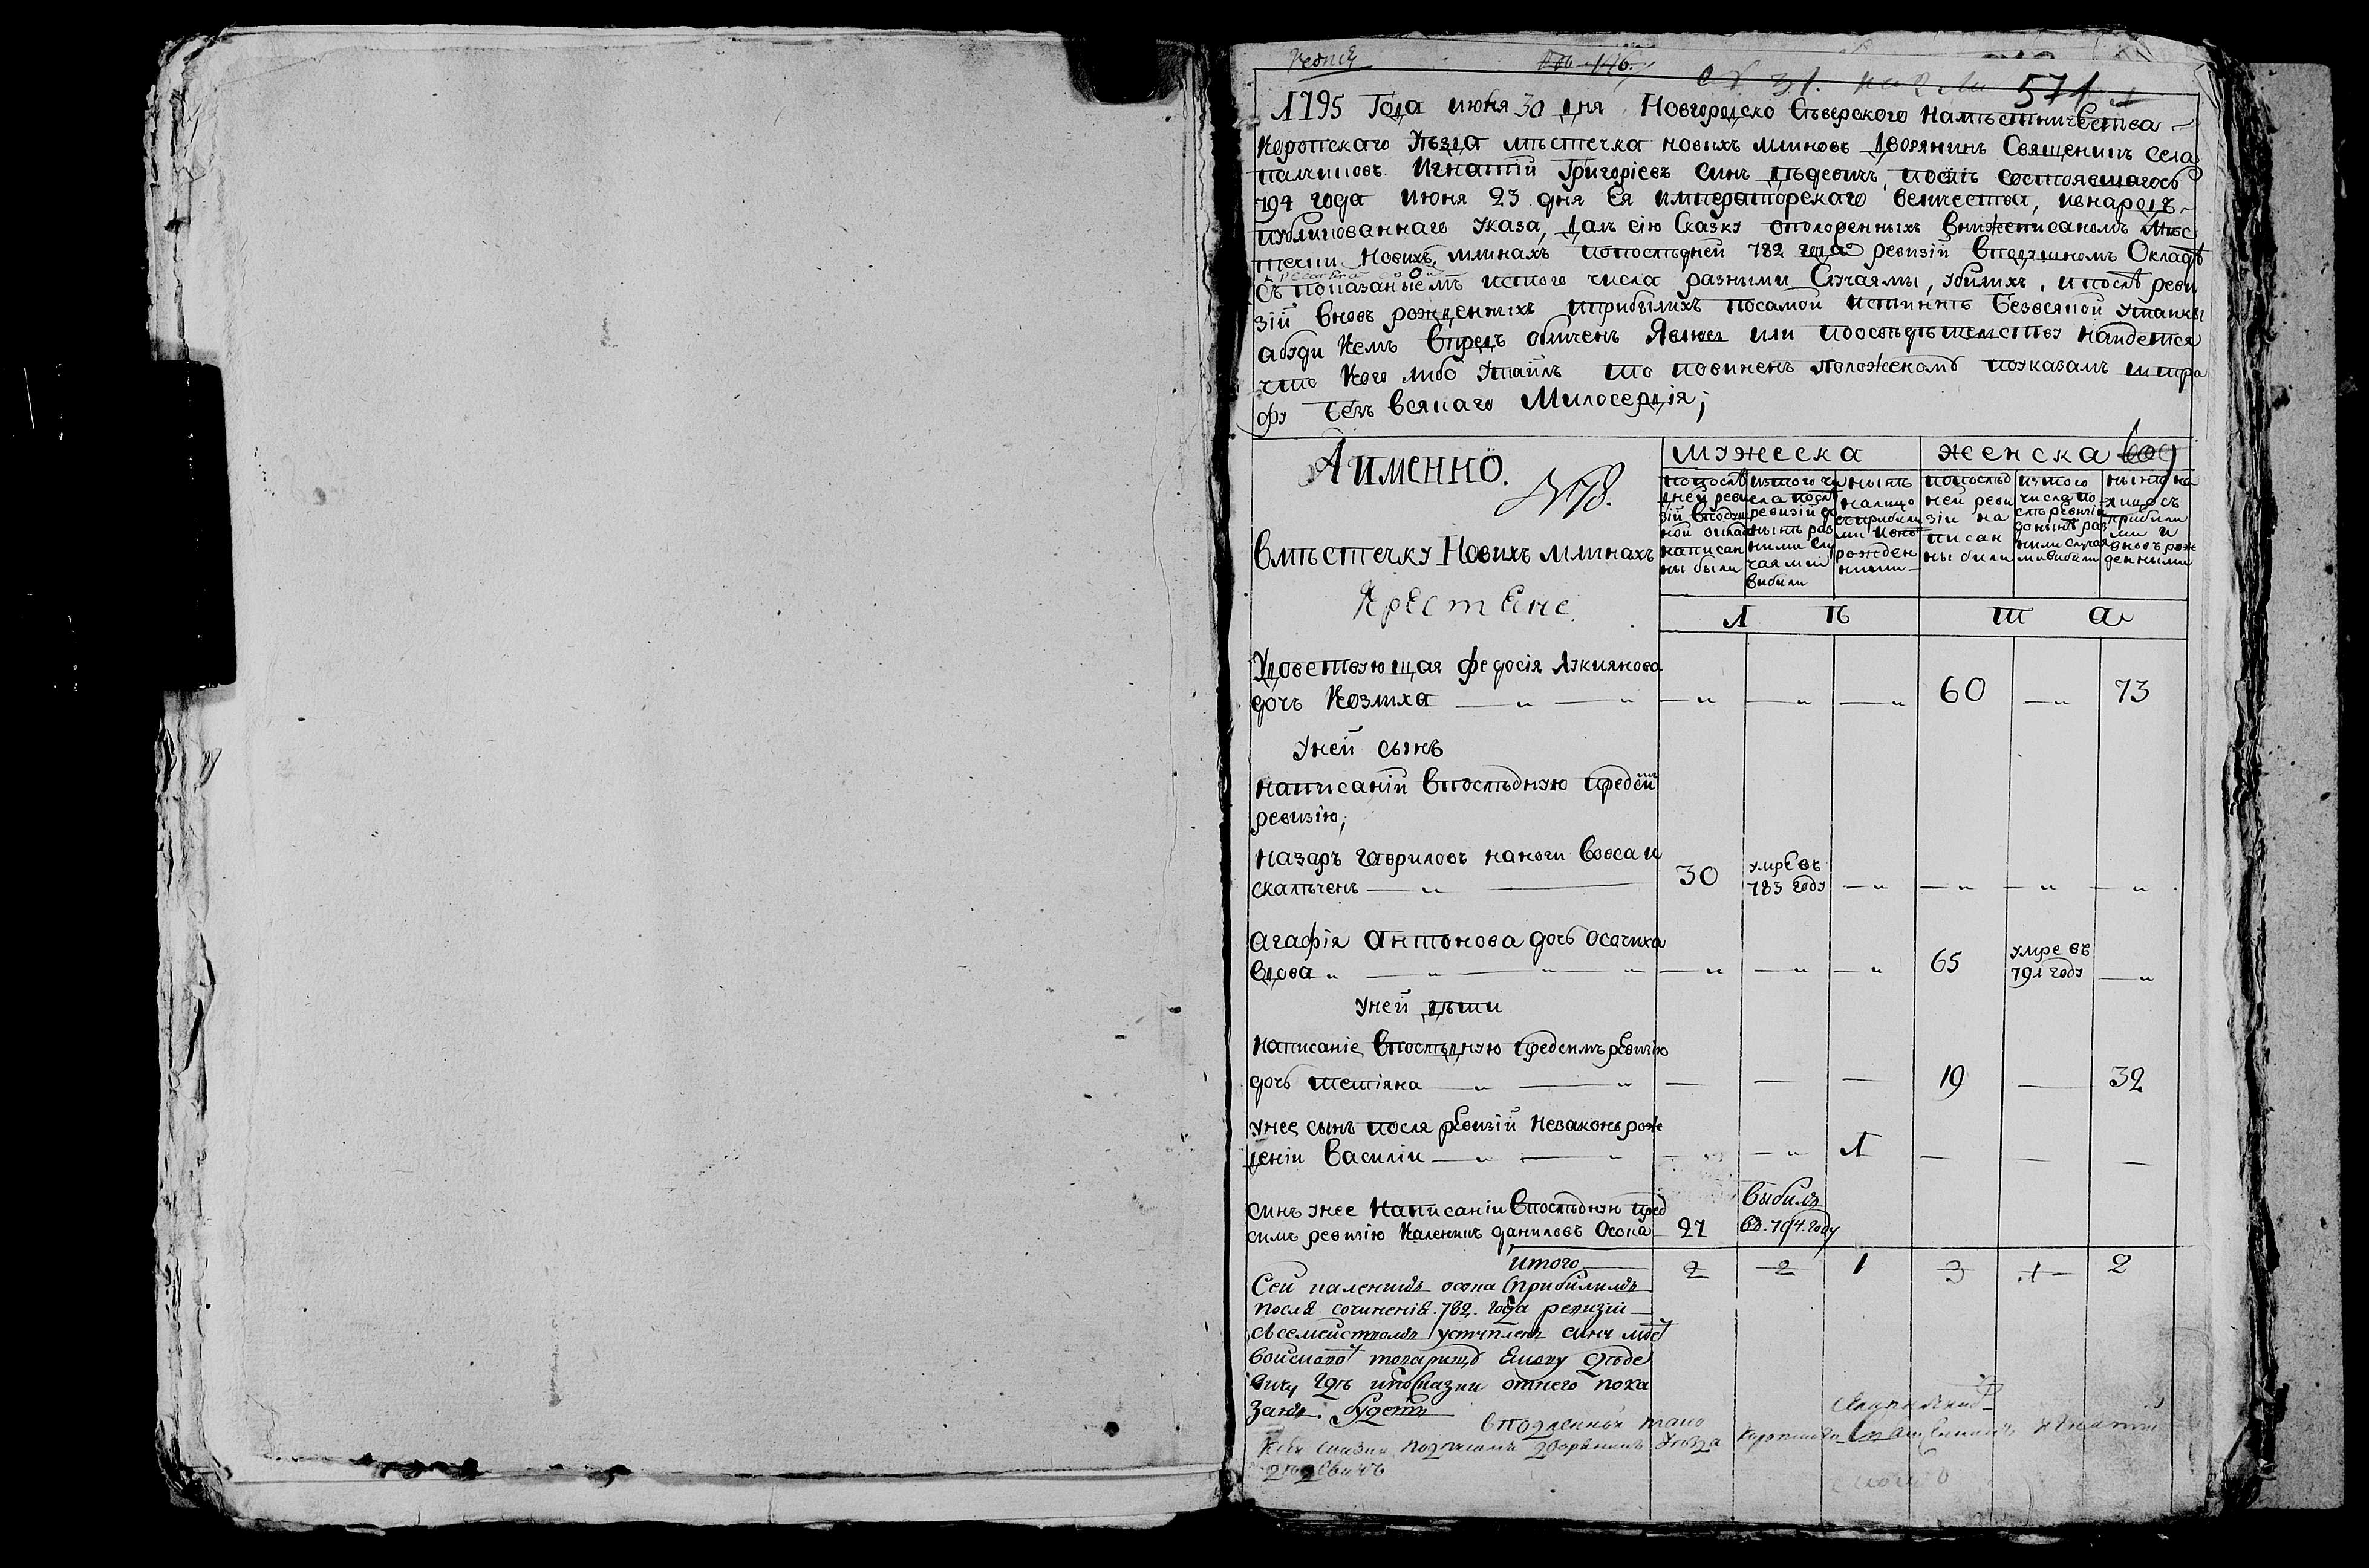 571
1795 Года июня 30 дня Новгородско Сѣверского Намѣстничества
Коропскаго Уѣзда мѣстечка новихъ млиновъ Дворянинъ Священикъ села
Григоріевъ синъ дѣдевичъ, послѣ состоявшагось
794 года июня 23 дня Ея императорскаго величества, ивнародъ
публикованнаго указа, далъ сію Сказку оположенныхъ вишеписаномъ Мѣс
течки Новихъ млинахъ попослѣдней 782 года ревизій вподушномъ Окладѣ
съ показаныемъ истого числа разными Случаями, убилихъ, ипослѣ реви
зій вновь рожденнихъ иприбылихъ посамой истиннѣ безвсякой утайки
абуди кемъ впредь обличенъ явлюсь или посвѣдѣтельству найдется
что кого либо утаилъ то повиненъ положеномъ поуказамъ штра
фу безъ всякаго Милосердія;
Аименно.
№78.
вмѣстечку Новихъ млинахъ
Крестяне
мужеска
женска
609
попослѣ
дней реви
зій вподуш
ной окладъ
написан
ны были
изтого чи
сла послѣ
ревизій до
нынѣ раз
ними слу
чаями
вибили
нынѣ
налицо
сприбили
ми ивнь
рожден
ними
попослѣд
ней реви
зіи на
писан
ны били
изтого
числа по
слѣ ревизіи
донынѣ раз
ними случая
ми вибили
нынѣ на
лицо съ
прибили
ми и
вновъ рож
денными
Л ѣ т а
Удовствующая федосія Лукиянова
дочъ Козлиха — „ — „ — „ — „ — „ 60 — „ 73
уней сынъ
написаній впослѣдную предсимъ
ревизію,
назаръ гавриловъ наноги вовса и
скалѣченъ — „ — 30 умре въ 783 году — „ — „ — „ — „
агафія антонова дочъ осочиха
вдова „ — „ — „ — „ — „ — „ — „ 65 умре въ 791 году — „
уней дѣти
написаніе впослѣдную предсимъ ревизію
дочъ тетіяна — „ — „ — — — 19 — 32
унее сынъ после ревизій незаконъ рож
деніи василіи — „ — „ — „ — „ 1 — — —
синъ унее написаніи впослѣдную пред
симъ ревизію каленикъ даниловъ Осока 27 выбилъ въ 794. году
итого 2 2 1 3 1 2
Сей каленикъ осока прибилимъ
после сочиненія .782. года ревизіи
съсемействомъ уступленъ сину моему
войсковому товарищу дѣде
вичу гдѣ и посказки отнего пока
занъ будетъ
вподленной тако
Ксей сказки подписалъ дворянинъ уѣзда Священникъ Игнатій
дѣдевичъ